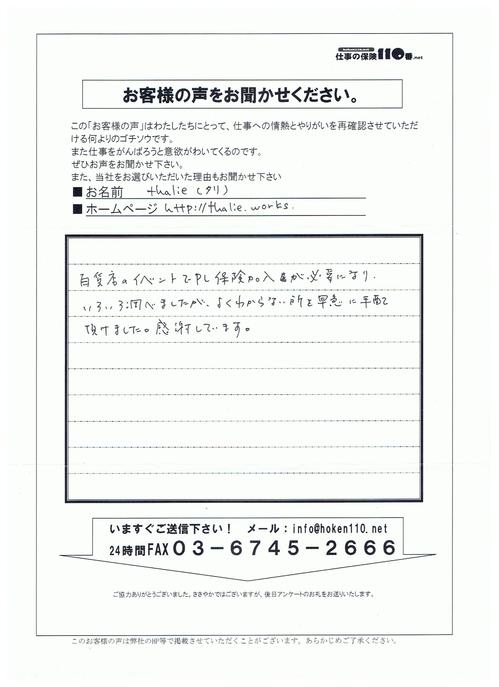 仕事の保険110番.net
お客様の声をお聞かせください。
この「お客様の声」はわたしたちにとって、仕事への情熱とやりがいを再確認させていただ
ける何よりのゴチソウです。
また仕事をがんばろうと意欲がわいてくるのです。
ぜひお声をお聞かせ下さい。
また、当社をお選びいただいた理由もお聞かせ下さい
■お名前 thalie (タリ)
■ホームページ http://thalie.works.
百貨店のイベントでPL保険加入が必要になり、
いろいろ調べましたが、よくわからない所を早急に手配
頂けました。感謝しています。
いますぐご送信下さい！ メール：info@hoken110.net
24時間FAX03-6745-2666
ご協力ありがとうございました。ささやかではございますが、後日アンケートのお礼をお送りいたします。
このお客様の声は弊社のHP等で掲載させていただくことがございます。あらかじめご了承ください。